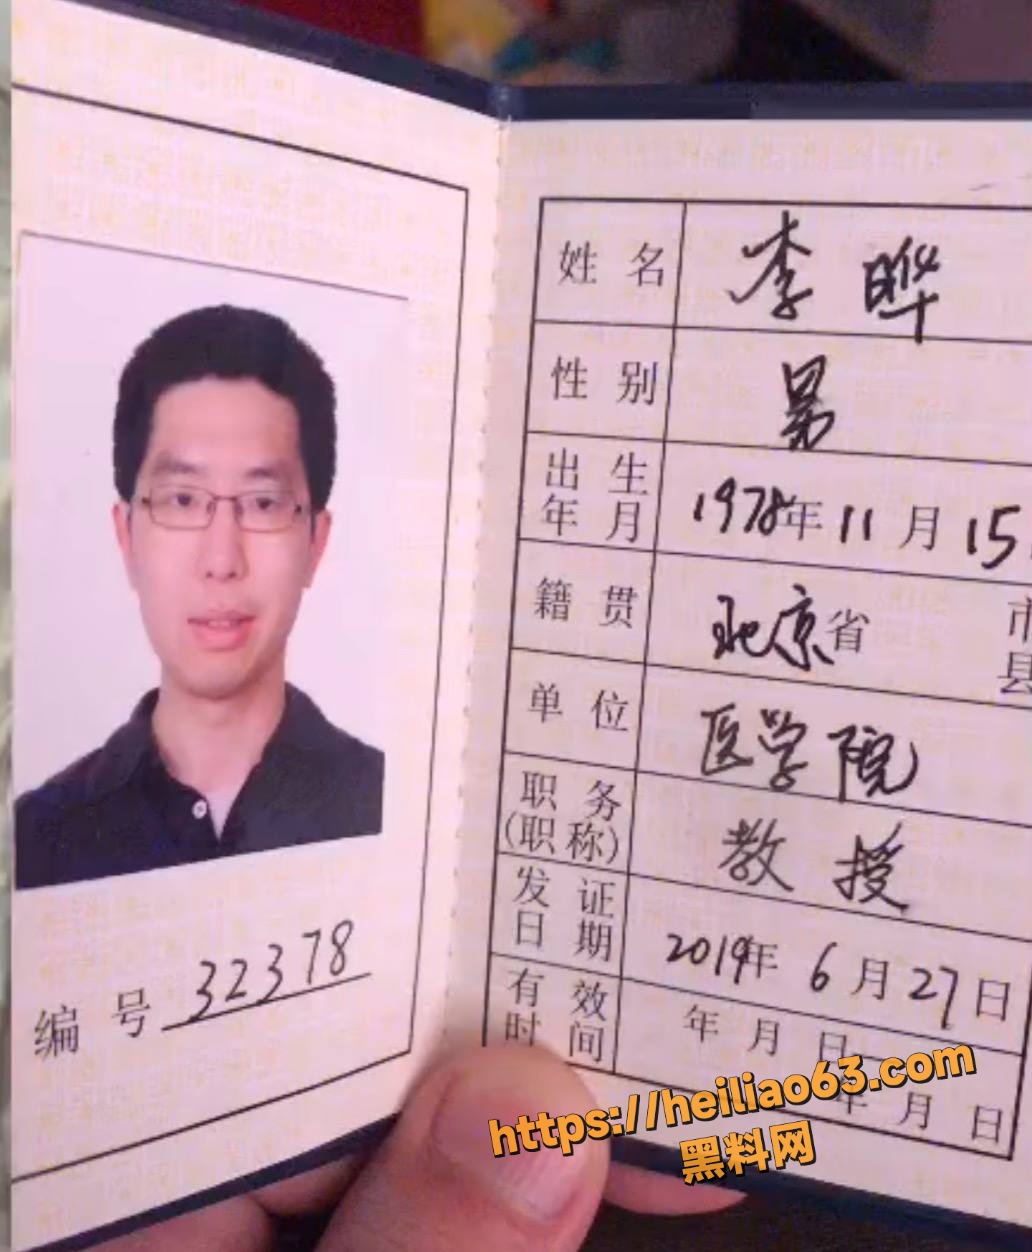 编号 32378
姓名 李晔
性别 男
出生年月 1978年11月15
籍贯 北京省 市县
单位 医学院
职务(职称) 教授
发证日期 2019年6月27日
有效时间 年 月 日
年 月 日
https://heiliao63.com
黑料网